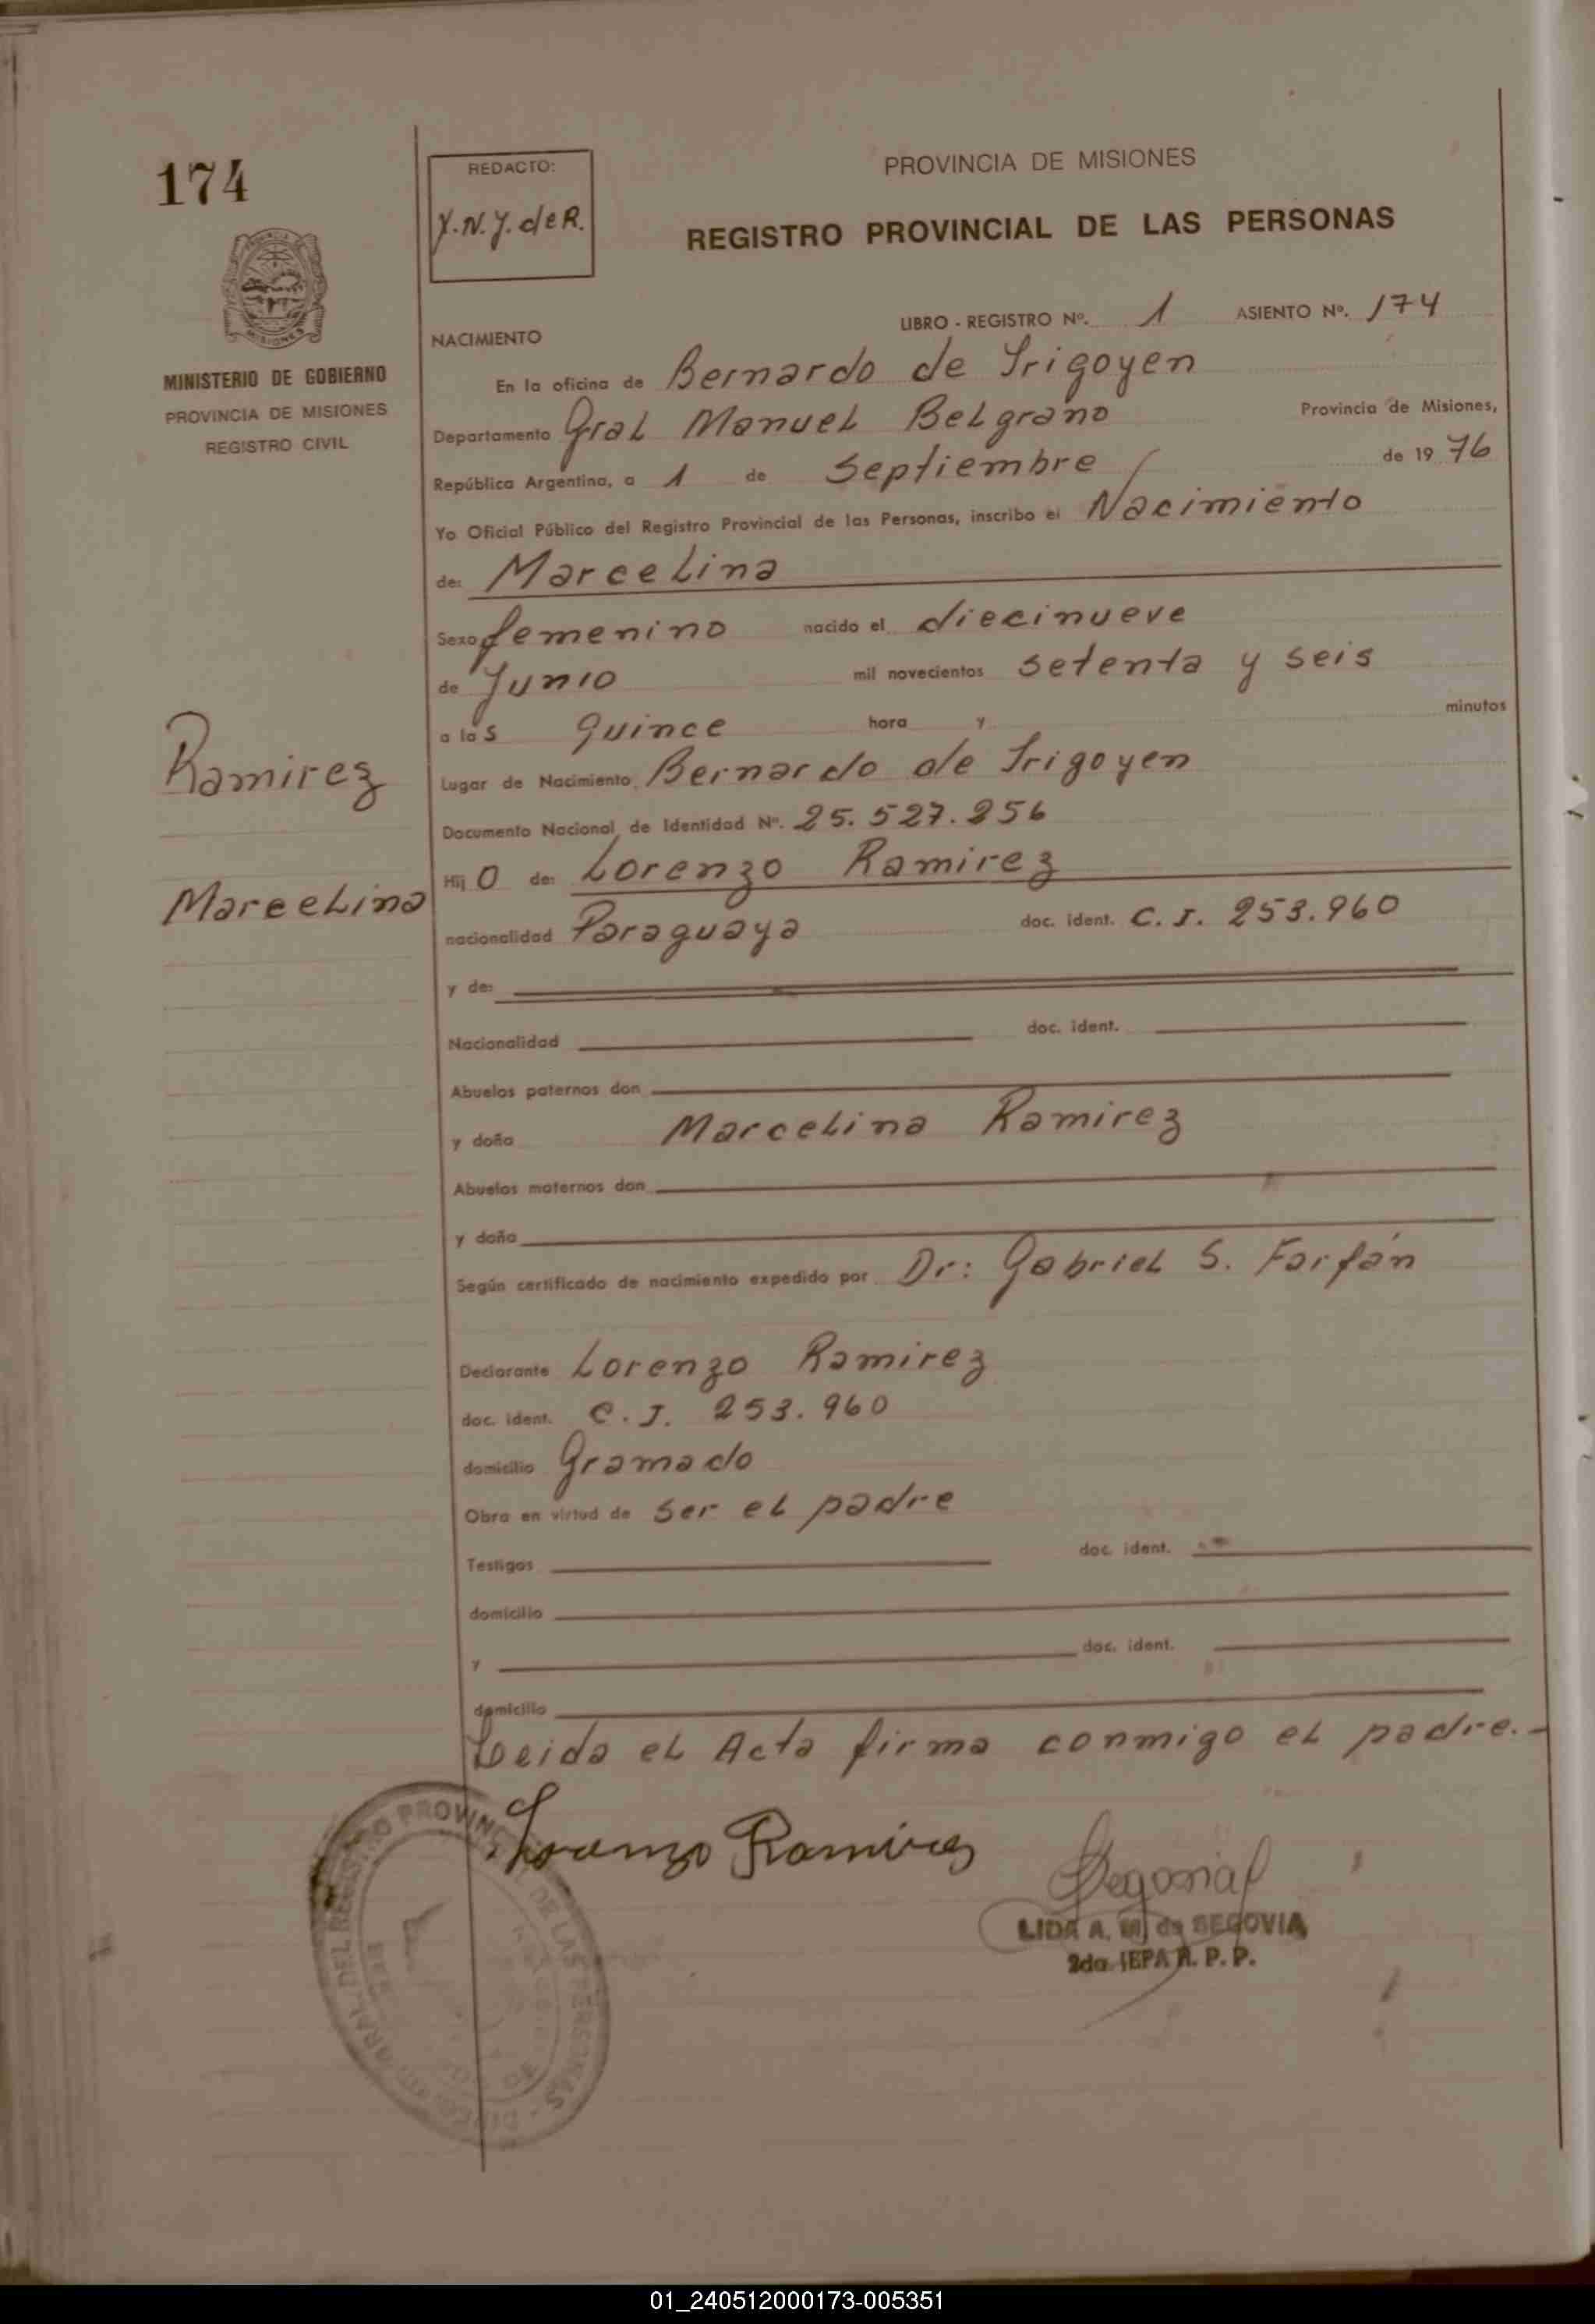 174
REDACTO:
Y.N.Y. de R.
PROVINCIA DE MISIONES
REGISTRO PROVINCIAL DE LAS PERSONAS
MINISTERIO DE GOBIERNO
PROVINCIA DE MISIONES
REGISTRO CIVIL
LIBRO - REGISTRO Nº. 1 ASIENTO Nº. 174
NACIMIENTO
En la oficina de Bernardo de Irigoyen
Departamento Gral Manuel Belgrano Provincia de Misiones,
República Argentina, a 1 de Septiembre de 19 76
Yo Oficial Público del Registro Provincial de las Personas, inscribo el Nacimiento
de: Marcelina
Sexo femenino nacido el diecinueve
de Junio mil novecientos setenta y seis
a las quince hora y minutos
Ramirez
Marcelina
Lugar de Nacimiento, Bernardo de Irigoyen
Documento Nacional de Identidad Nº. 25.527.256
Hij o de: Lorenzo Ramirez
nacionalidad Paraguaya doc. ident. C. I. 253.960
y de:
Nacionalidad doc. ident.
Abuelos paternos don
y doña Marcelina Ramirez
Abuelos maternos don
y doña
Según certificado de nacimiento expedido por Dr: Gabriel S. Farfán
Declarante Lorenzo Ramirez
doc. ident. C. I. 253.960
domicilio Gramado
Obra en virtud de ser el padre
Testigos doc. ident.
domicilio
y doc. ident.
domicilio
Leida el Acta firma conmigo el padre.-
Lorenzo Ramirez
LIDA A. M. de SEGOVIA
2da. JEFA R. P. P.
DEL REGISTRO PROVINCIAL DE LAS PERSONAS
01_240512000173-005351